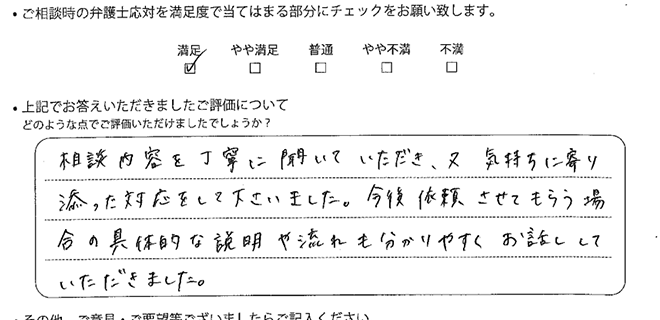 ・ご相談時の弁護士応対を満足度で当てはまる部分にチェックをお願い致します。
満足 やや満足 普通 やや不満 不満
☑ □ □ □ □
・上記でお答えいただきましたご評価について
どのような点でご評価いただけましたでしょうか？
相談内容を丁寧に聞いていただき、又気持ちに寄り
添った対応をして下さいました。今後依頼させてもらう場
合の具体的な説明や流れも分かりやすくお話しして
いただきました。
・その他、ご意見・ご要望等ございましたらご記入ください